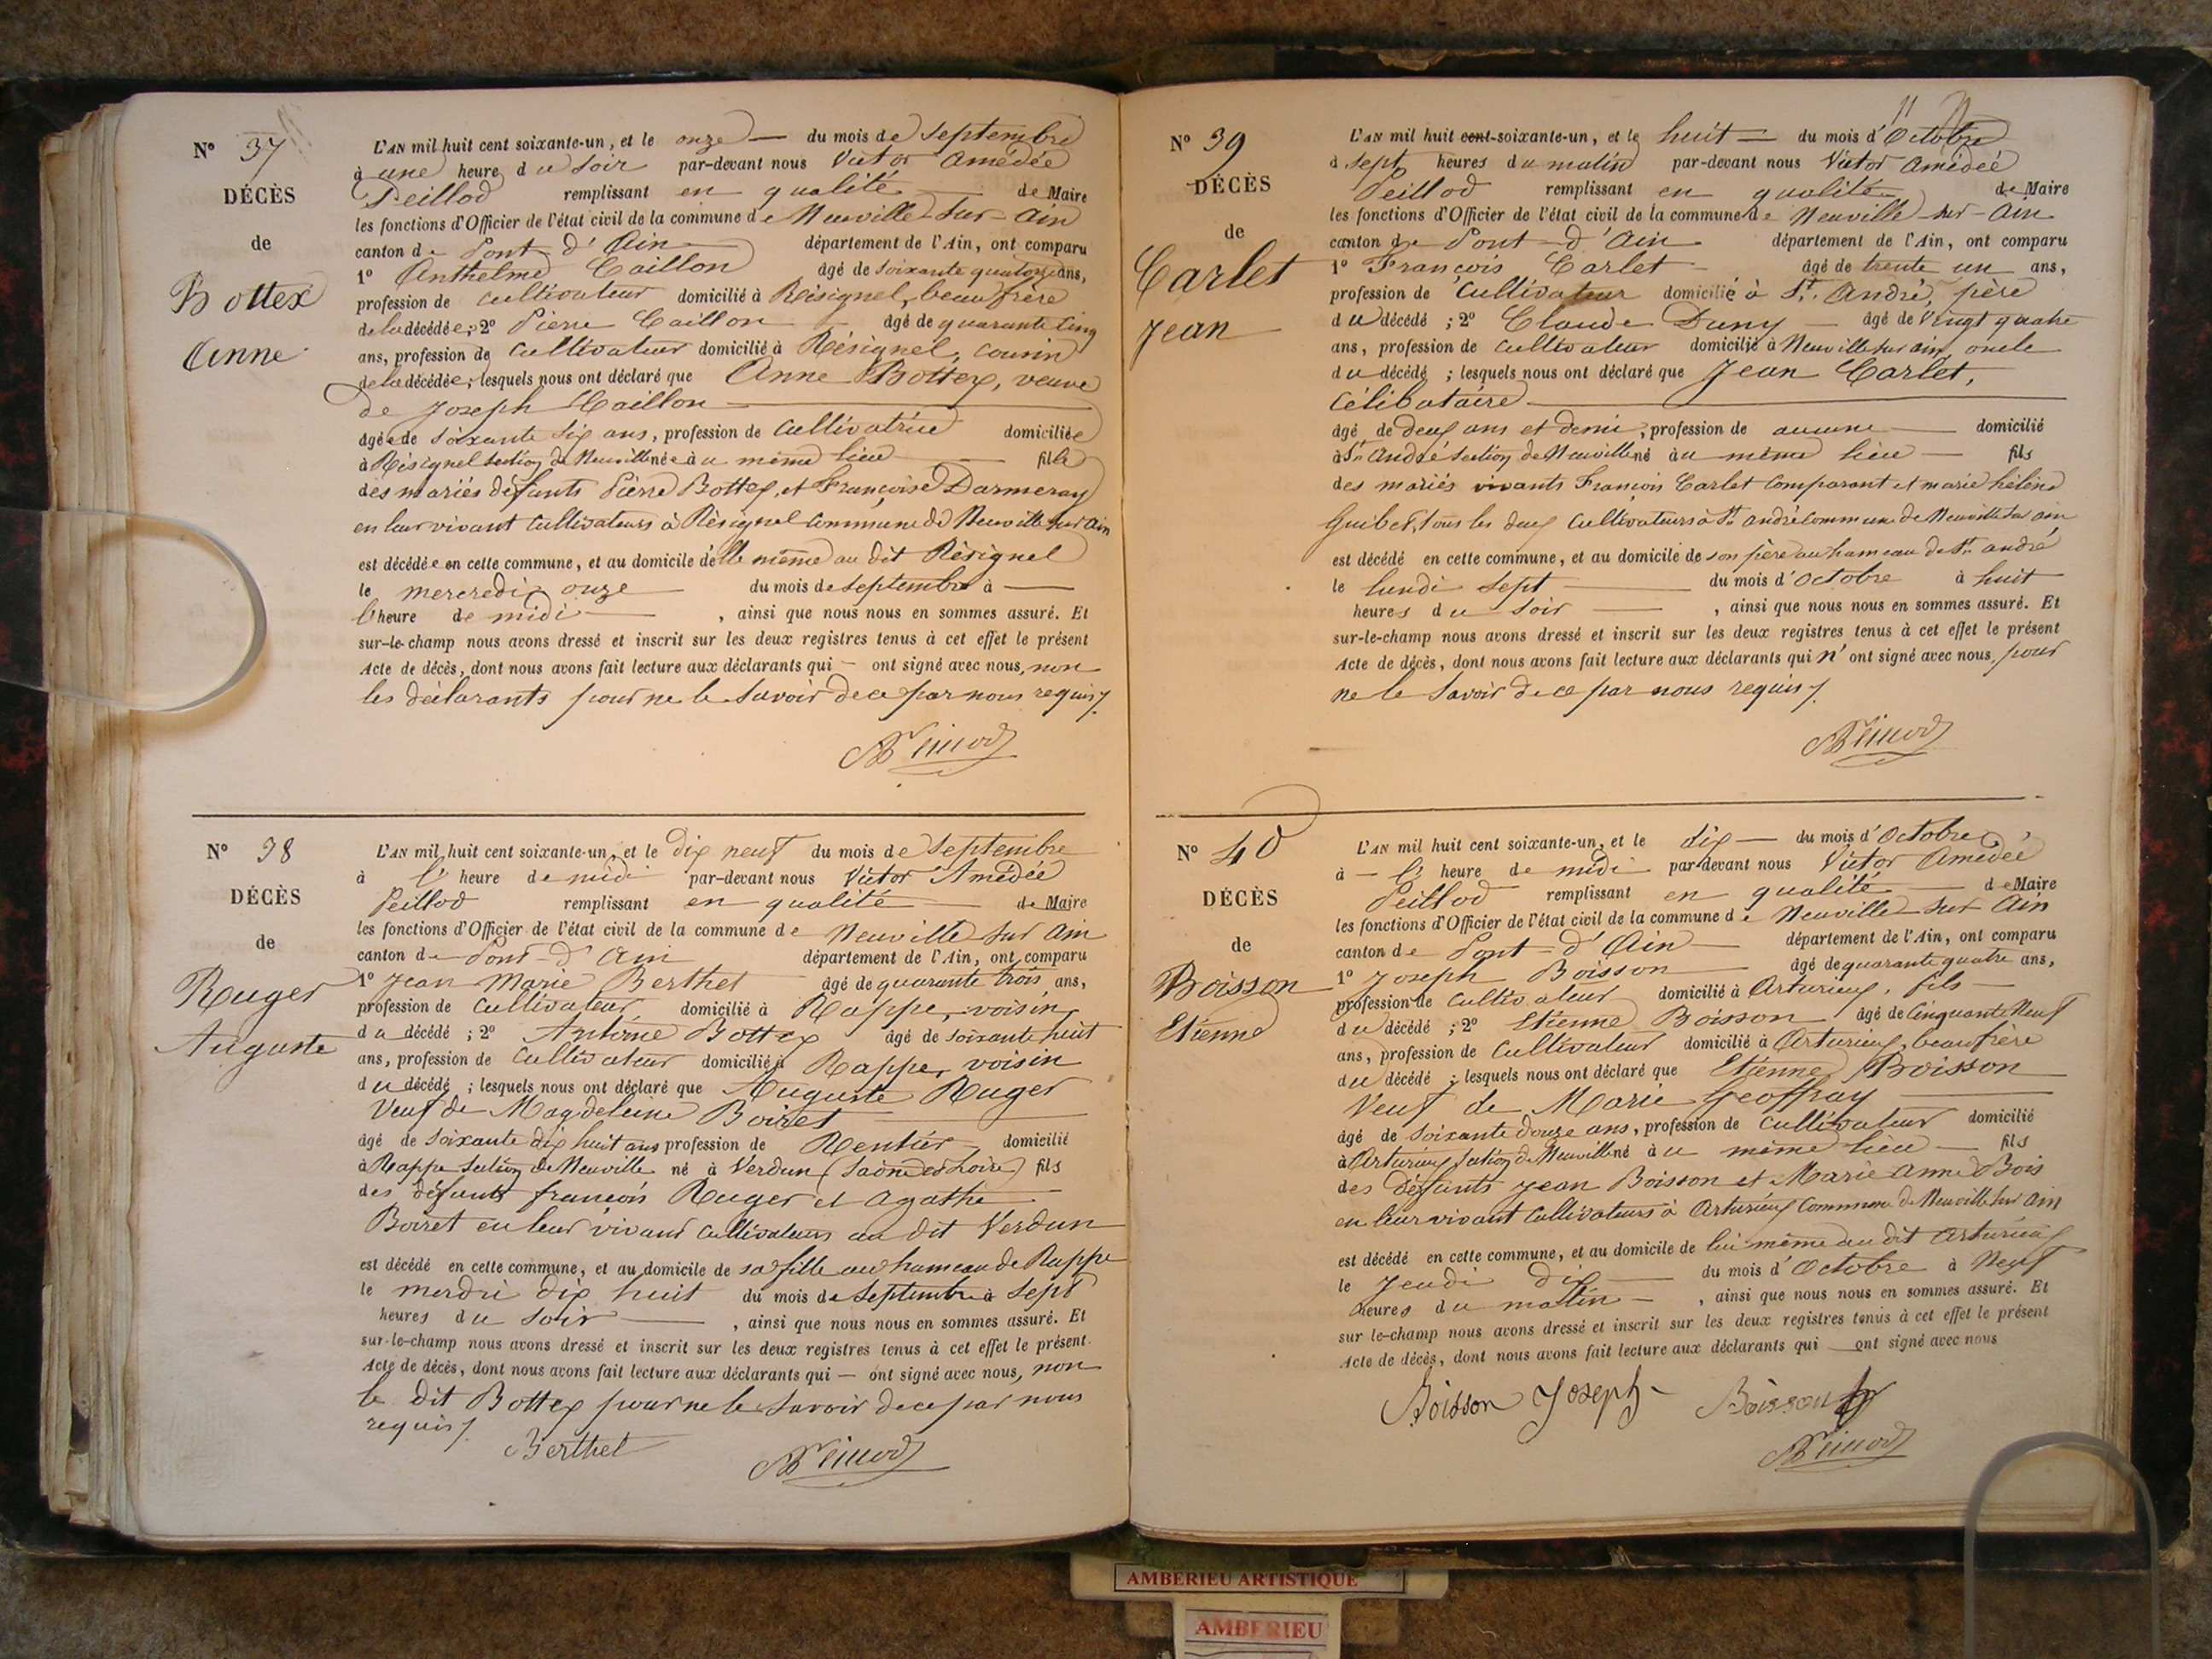 N° 37
DÉCÈS
de
Bottex
Anne
L'AN mil huit cent soixante-un, et le onze — du mois de Septembre
à une heure du Soir par-devant nous Victor Amédée
Peillod remplissant en qualité — de Maire
les fonctions d'Officier de l'état civil de la commune de Neuville-sur-Ain
canton de Pont-d'Ain département de l'Ain, ont comparu
1° Anthelme Caillon âgé de soixante quatorze ans,
profession de cultivateur domicilié à Résignel, beau frère
de la décédée; 2° Pierre Caillon — âgé de quarante cinq
ans, profession de Cultivateur domicilié à Résignel, cousin
de la décédée; lesquels nous ont déclaré que Anne Bottex, veuve
de Joseph Caillon —
âgée de soixante six ans, profession de Cultivatrice domiciliée
à Résignel Section de Neuville née à u même lieu — fille
des mariés défunts Pierre Bottex, et Françoise Darmeray
en leur vivant Cultivateurs à Résignel Commune de Neuville sur Ain
est décédée en cette commune, et au domicile d'elle même au dit Résignel
le mercredi onze — du mois de Septembre à —
l'heure de midi — , ainsi que nous nous en sommes assuré. Et
sur-le-champ nous avons dressé et inscrit sur les deux registres tenus à cet effet le présent
Acte de décès, dont nous avons fait lecture aux déclarants qui — ont signé avec nous, non
les déclarants pour ne le Savoir de ce par nous requis
N° 38
DÉCÈS
de
Ruger
Auguste
L'AN mil huit cent soixante-un, et le dix neuf du mois de Septembre
à l' heure de midi par-devant nous Victor Amédée
Peillod remplissant en qualité — de Maire
les fonctions d'Officier de l'état civil de la commune de Neuville sur Ain
canton de Pont-d'Ain département de l'Ain, ont comparu
1° Jean Marie Berthet — âgé de quarante trois ans,
profession de Cultivateur domicilié à Rappe, voisin
du décédé; 2° Antoine Bottex âgé de soixante huit
ans, profession de Cultivateur domicilié à Rappe, voisin
du décédé; lesquels nous ont déclaré que Auguste Ruger
Veuf de Magdeleine Boiret —
âgé de soixante dix huit ans profession de Rentier, domicilié
à Rappe Section de Neuville né à Verdun (Saône et Loire) fils
des défunts françois Ruger et Agathe
Boiret en leur vivant Cultivateurs au dit Verdun
est décédé en cette commune, et au domicile de sa fille au hameau de Rappe
le merdri dix huit du mois de Septembre à Sept
heures du Soir — , ainsi que nous nous en sommes assuré. Et
sur-le-champ nous avons dressé et inscrit sur les deux registres tenus à cet effet le présent
Acte de décès, dont nous avons fait lecture aux déclarants qui — ont signé avec nous, non
le dit Bottex pour ne le Savoir de ce par nous
requis
Berthet
11
N° 39
DÉCÈS
de
Carlet
Jean
L'AN mil huit cent-soixante-un, et le huit — du mois d'Octobre
à sept heures du matin par-devant nous Victor Amédée
Peillod remplissant en qualité de Maire
les fonctions d'Officier de l'état civil de la commune de Neuville-sur-Ain
canton de Pont-d'Ain département de l'Ain, ont comparu
1° François Carlet — âgé de trente un ans,
profession de Cultivateur domicilié à St. André, père
du décédé; 2° Claude Puny — âgé de vingt quatre
ans, profession de Cultivateur domicilié à Neuville sur ain, oncle
du décédé; lesquels nous ont déclaré que Jean Carlet,
Célibataire —
âgé de deux ans et demi, profession de aucune — domicilié
à St André Section de Neuville né au même lieu — fils
des mariés vivants François Carlet Comparant et marie hélène
Guibet, tous les deux Cultivateurs à St andré commune de Neuville sur ain
est décédé en cette commune, et au domicile de son père au hameau de St andré
le lundi sept — du mois d'Octobre à huit
heures du Soir — , ainsi que nous nous en sommes assuré. Et
sur-le-champ nous avons dressé et inscrit sur les deux registres tenus à cet effet le présent
Acte de décès, dont nous avons fait lecture aux déclarants qui n'ont signé avec nous, pour
ne le Savoir de ce par nous requis
N° 40
DÉCÈS
de
Boisson
Etienne
L'AN mil huit cent soixante-un, et le dix — du mois d'Octobre
à — l' heure de midi par-devant nous Victor Amédée
Peillod remplissant en qualité — de Maire
les fonctions d'Officier de l'état civil de la commune de Neuville sur Ain
canton de Pont-d'Ain — département de l'Ain, ont comparu
1° Joseph Boisson — âgé de quarante quatre ans,
profession de Cultivateur domicilié à Arturieux, fils —
du décédé; 2° Etienne Boisson âgé de Cinquante Neuf
ans, profession de Cultivateur domicilié à Arturieux, beau frère
du décédé; lesquels nous ont déclaré que Etienne Boisson
Veuf de Marie Geoffray —
âgé de soixante douze ans, profession de Cultivateur domicilié
à Arturieux Section de Neuville né à u même lieu — fils
des défunts Jean Boisson et Marie Anne Bois
en leur vivant Cultivateurs à Arturieux Commune de Neuville sur Ain
est décédé en cette commune, et au domicile de lui même au dit Arturieux
le Jeudi dix — du mois d'Octobre à Neuf
heures du matin — , ainsi que nous nous en sommes assuré. Et
sur le-champ nous avons dressé et inscrit sur les deux registres tenus à cet effet le présent
Acte de décès, dont nous avons fait lecture aux déclarants qui — ont signé avec nous
Boisson Joseph Boisson
AMBERIEU ARTISTIQUE
AMBERIEU